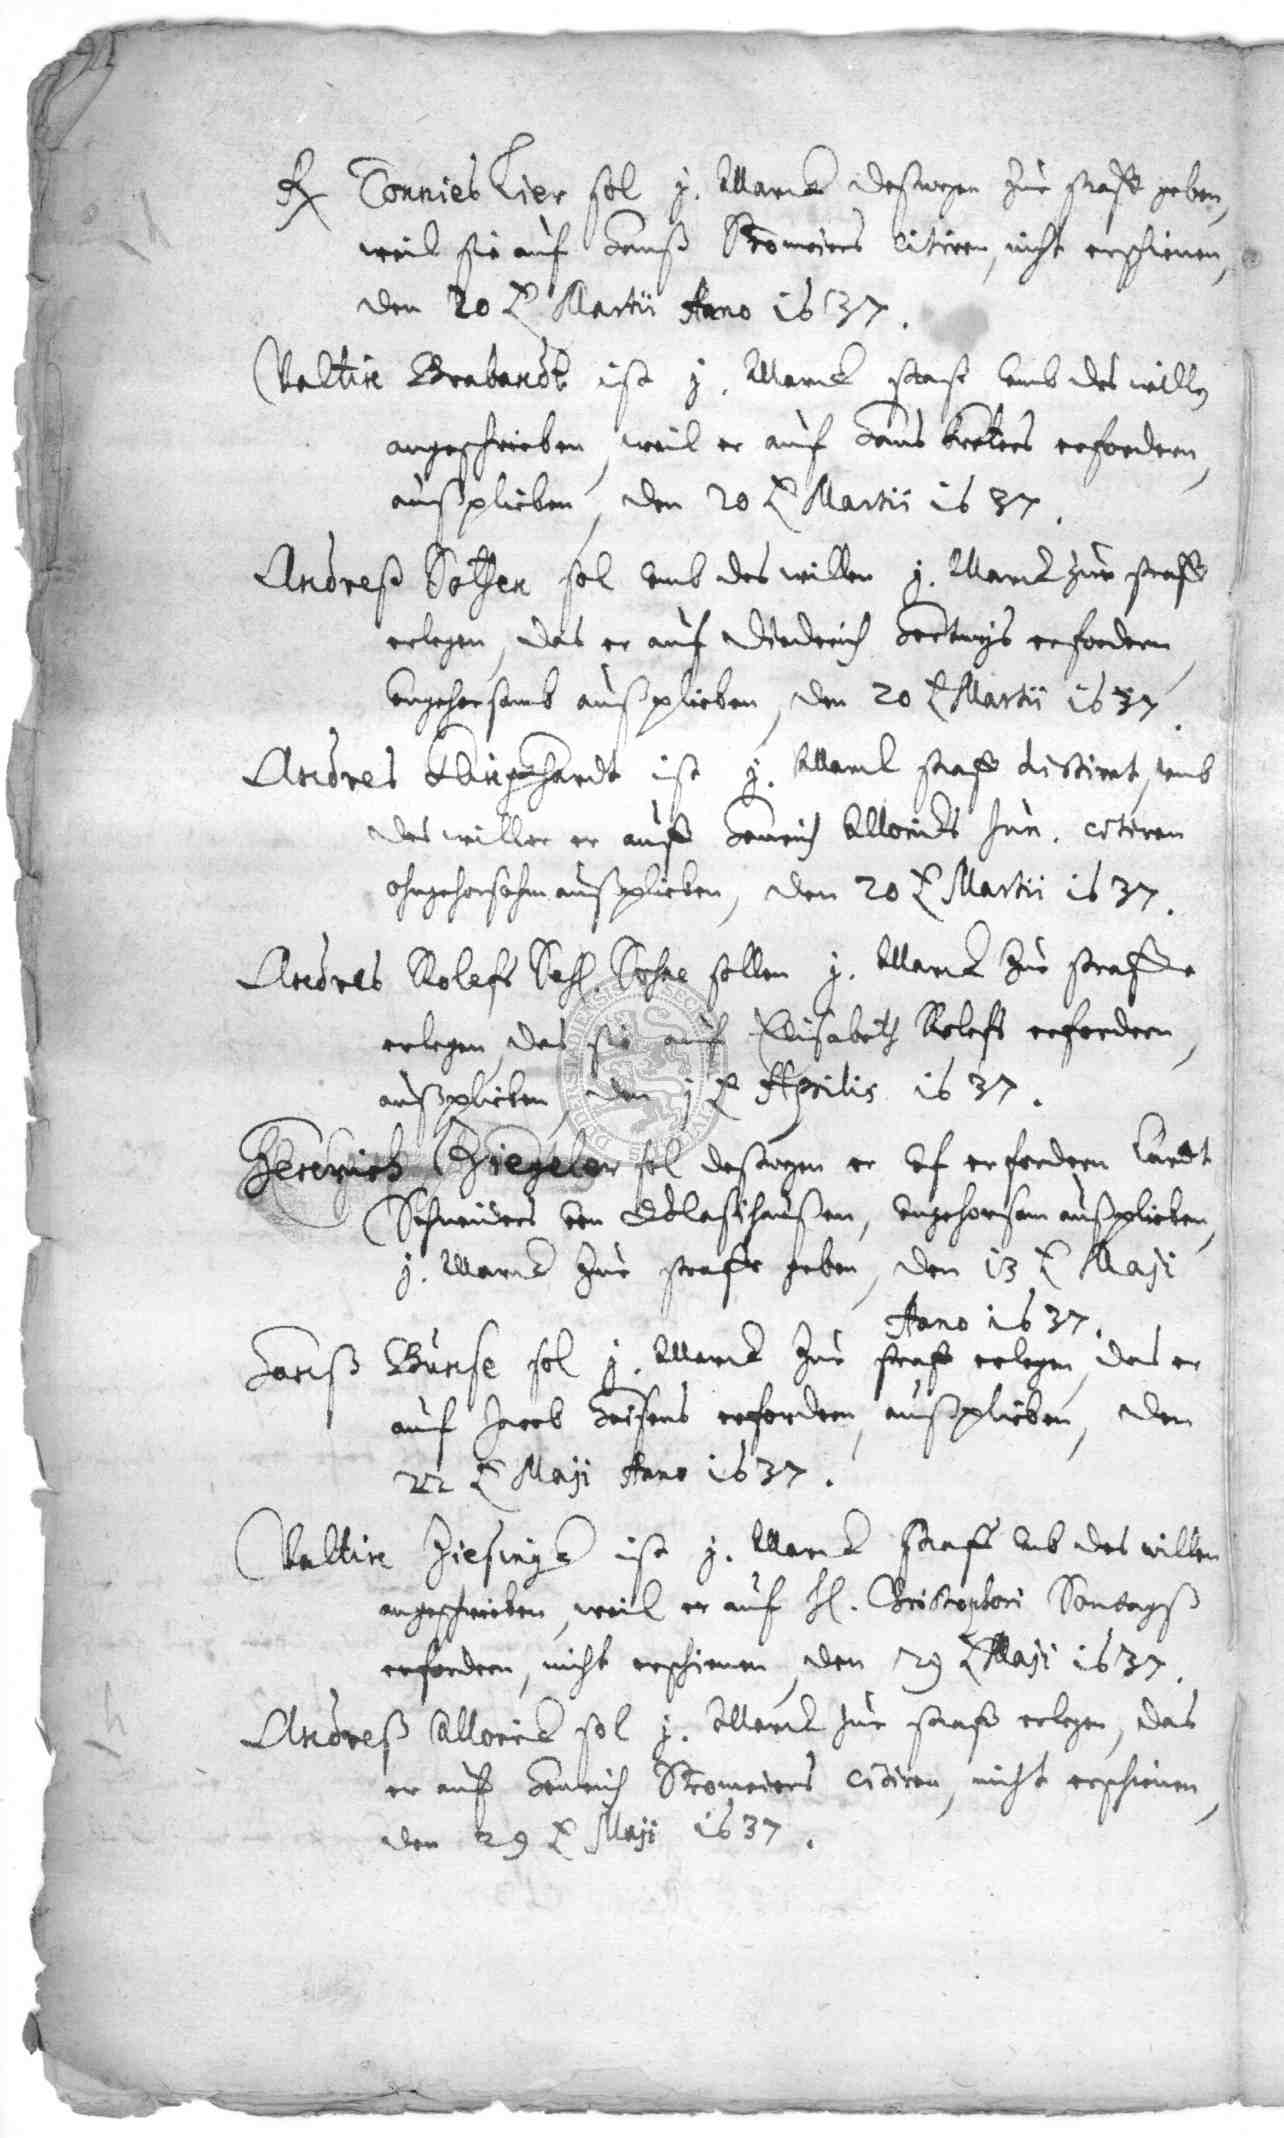 Tonnies Tier sol j. Marck deswegen zur straff geben,
weil sie auf Hanß Stromeiers citiren, nicht erschienen,
den 20 Martii Anno 1637.
Valtin Brabandt ist j. Marck straff umb des willen
angeschrieben, weil er auf Hans erfordern,
außplieben, den 20 Martii 1637.
Andreß Sothen sol umb des willen j. Marck zur straff
erlegen, das er auf Diederich Hertwigs erfordern
ungehorsamb außplieben, den 20 Martii 1637.
Andres Klingehardt ist j. Marck straff dictiret, umb
des willen er auff Henrich Moricks Jun. citiren
ohngehorsahm außplieben, den 20 Martii 1637.
Andres Rolefs Sehl. Sohne sollen j. Marck zur straffe
erlegen, das sie auf Elisabeth Rolefs erfordern,
außplieben, den j Aprilis 1637.
Henrich Ziegeler sol deswegen er uf erfordern Curdt
Schneiders von, ungehorsam außplieben,
j. Marck zur straffe geben, den 13 Maji
Anno 1637.
Hanß Bunse sol j. Marck zur straff erlegen, das er
auf Jacob Heisens erfordern, außplieben, den
22 Maji Anno 1637.
Valtin Ziesingk ist j. Marck straff umb des willen
angeschrieben, weil er auf H. Christophori Sontagß
erfordern, nicht erschienen, den 29 Maji 1637.
Andreß Morick sol j. Marck zur straff erlegen, das
er auf Henrich Stromeiers citiren, nicht erschienen,
den 29 Maji 1637.